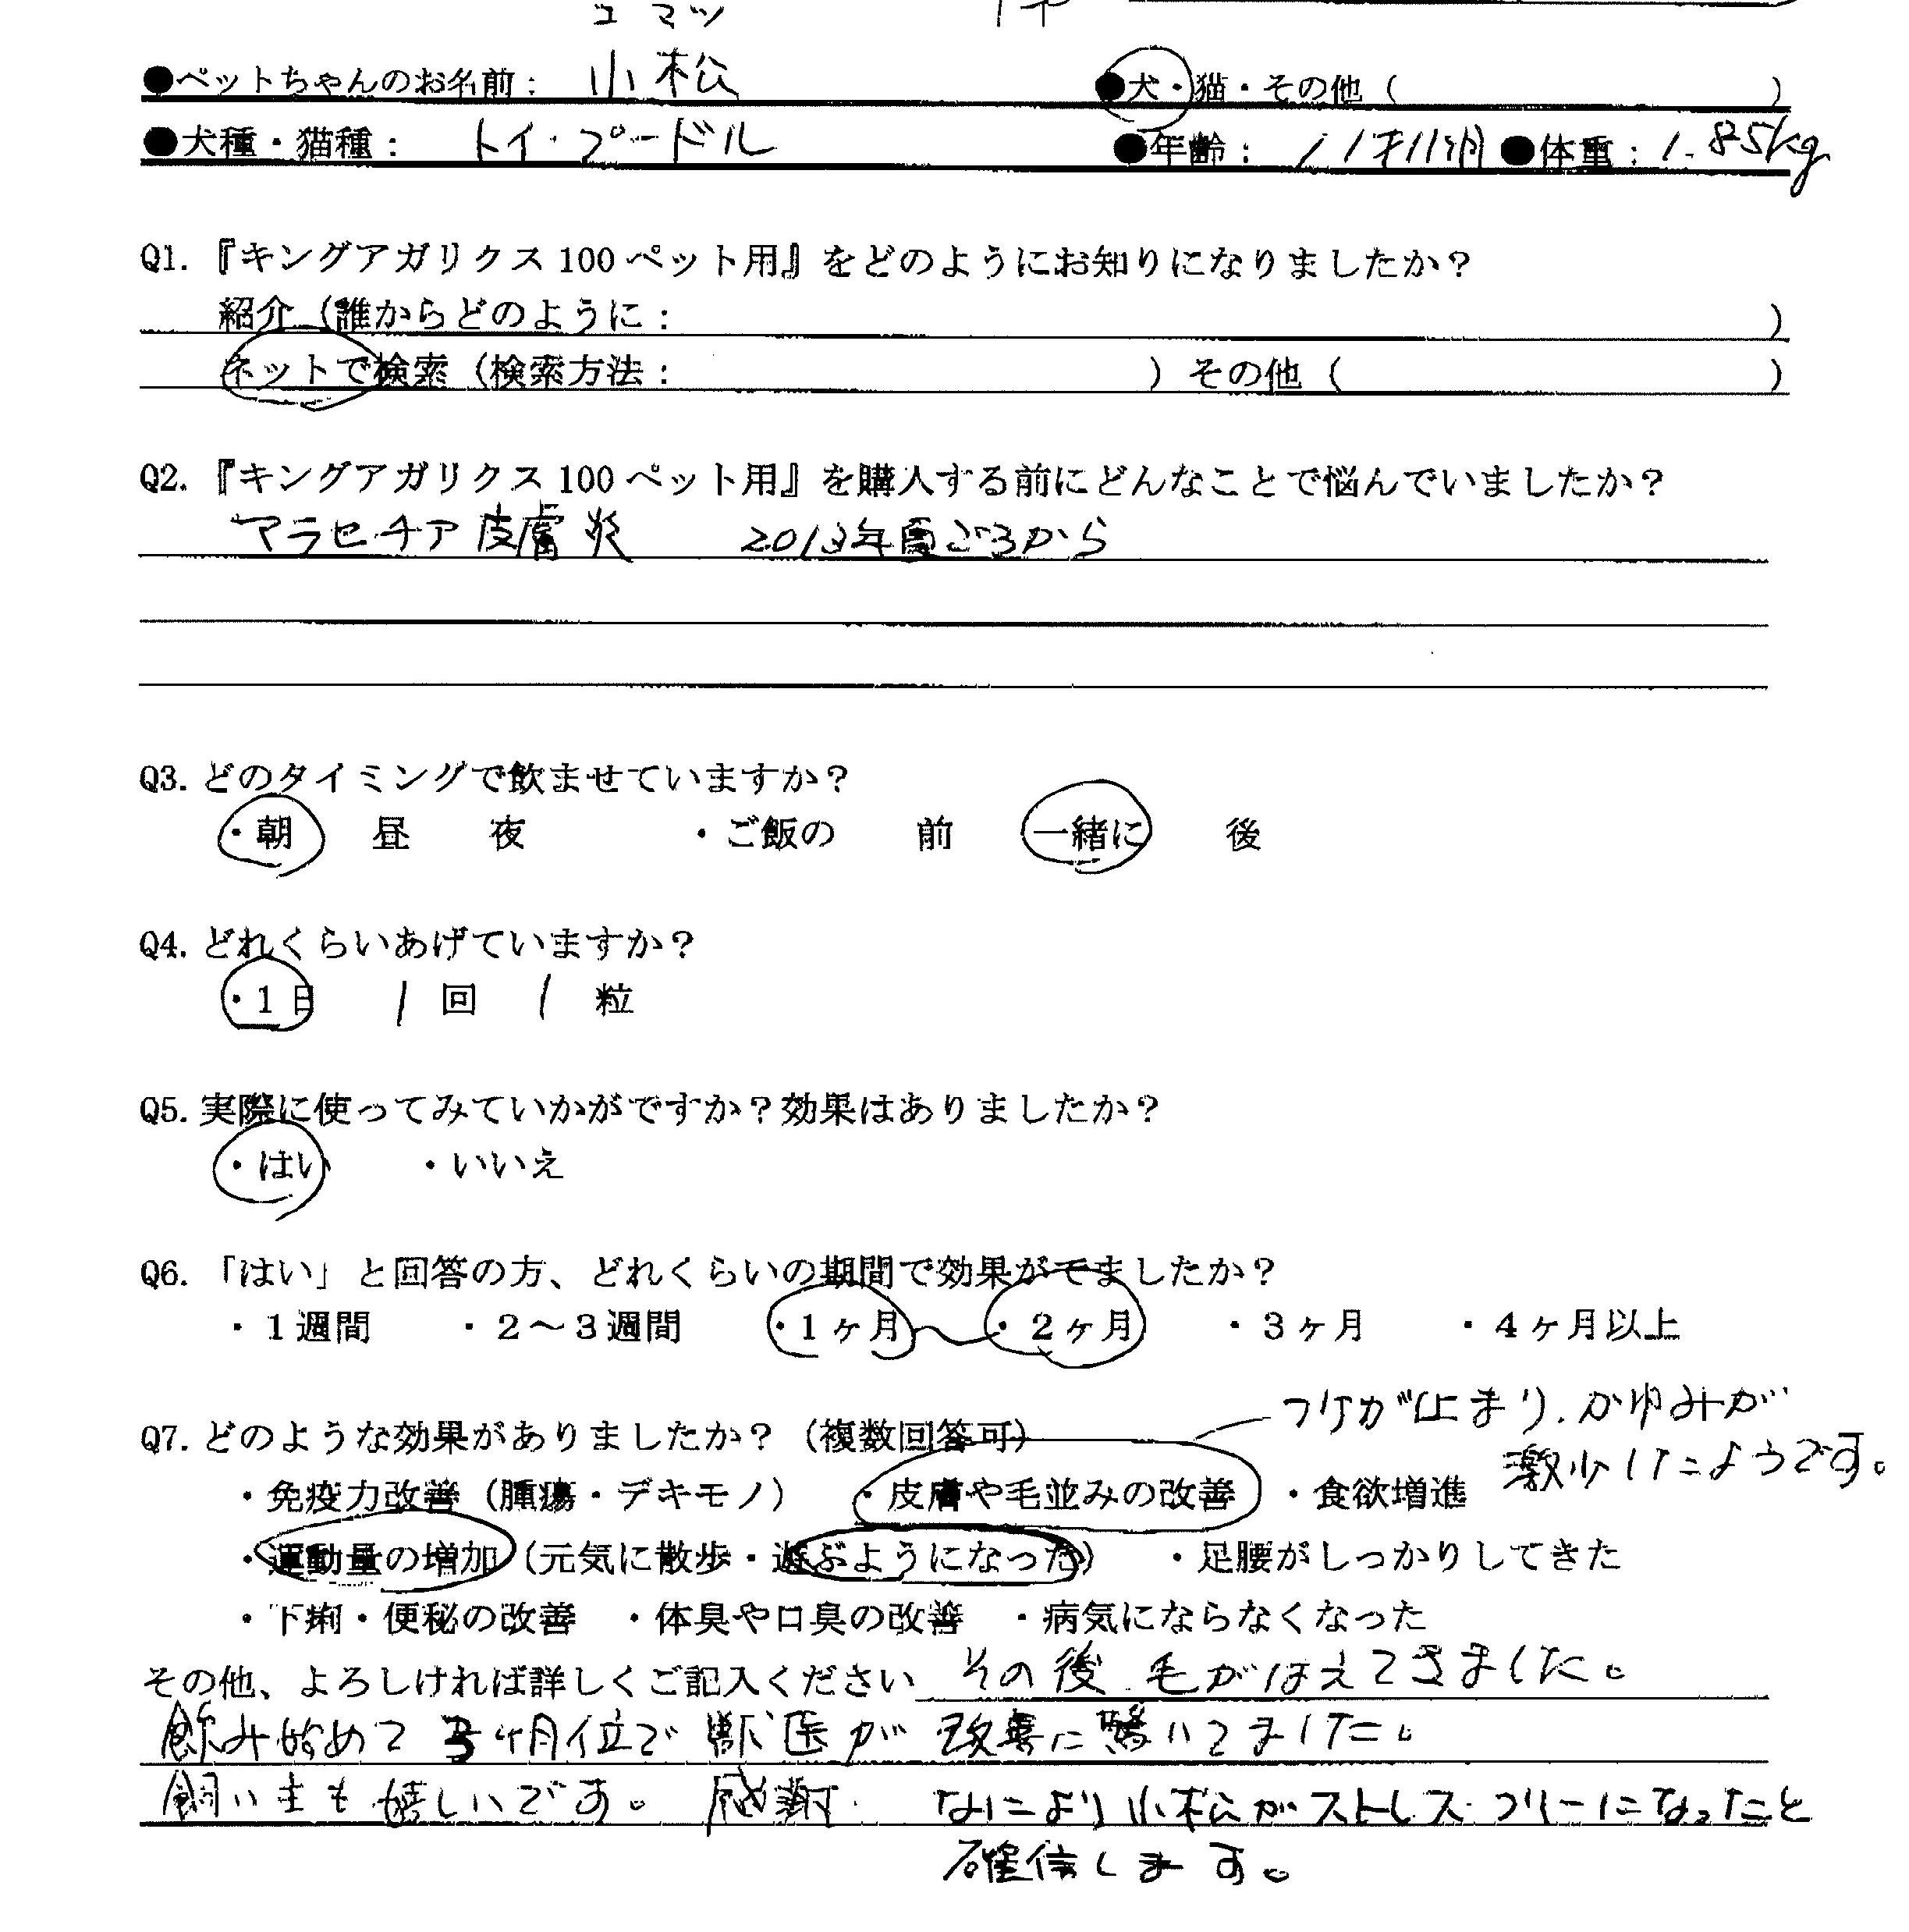 コマツ
●ペットちゃんのお名前： 小松 ●犬・猫・その他（ ）
●犬種・猫種： トイ・プードル ●年齢： 11才11ヶ月 ●体重：1.85kg
Q1.『キングアガリクス100ペット用』をどのようにお知りになりましたか？
紹介（誰からどのように： ）
ネットで検索（検索方法： ）その他（ ）
Q2.『キングアガリクス100ペット用』を購入する前にどんなことで悩んでいましたか？
マラセチア皮膚炎 2013年夏ごろから
Q3.どのタイミングで飲ませていますか？
・朝 昼 夜 ・ご飯の 前 一緒に 後
Q4.どれくらいあげていますか？
・1日 1 回 1 粒
Q5.実際に使ってみていかがですか？効果はありましたか？
・はい ・いいえ
Q6.「はい」と回答の方、どれくらいの期間で効果がでましたか？
・1週間 ・2～3週間 ・1ヶ月 ～ ・2ヶ月 ・3ヶ月 ・4ヶ月以上
フケが止まり、かゆみが
Q7.どのような効果がありましたか？（複数回答可）
激少したようです。
・免疫力改善（腫瘍・デキモノ） ・皮膚や毛並みの改善 ・食欲増進
・運動量の増加（元気に散歩・遊ぶようになった） ・足腰がしっかりしてきた
・下痢・便秘の改善 ・体臭や口臭の改善 ・病気にならなくなった
その他、よろしければ詳しくご記入ください その後 毛がはえてきました。
飲み始めて3ヶ月位で獣医が改善に驚いてました。
飼い主も嬉しいです。感謝 なにより小松がストレスフリーになったこと
確信します。